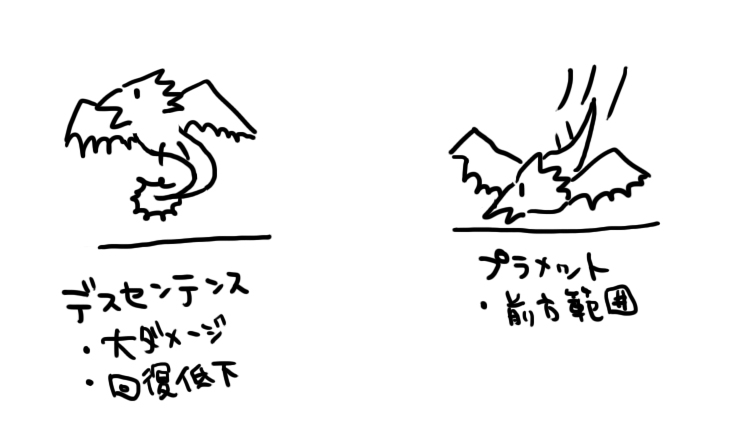 デスセンテンス
・大ダメージ
・回復低下
プラメット
・前方範囲